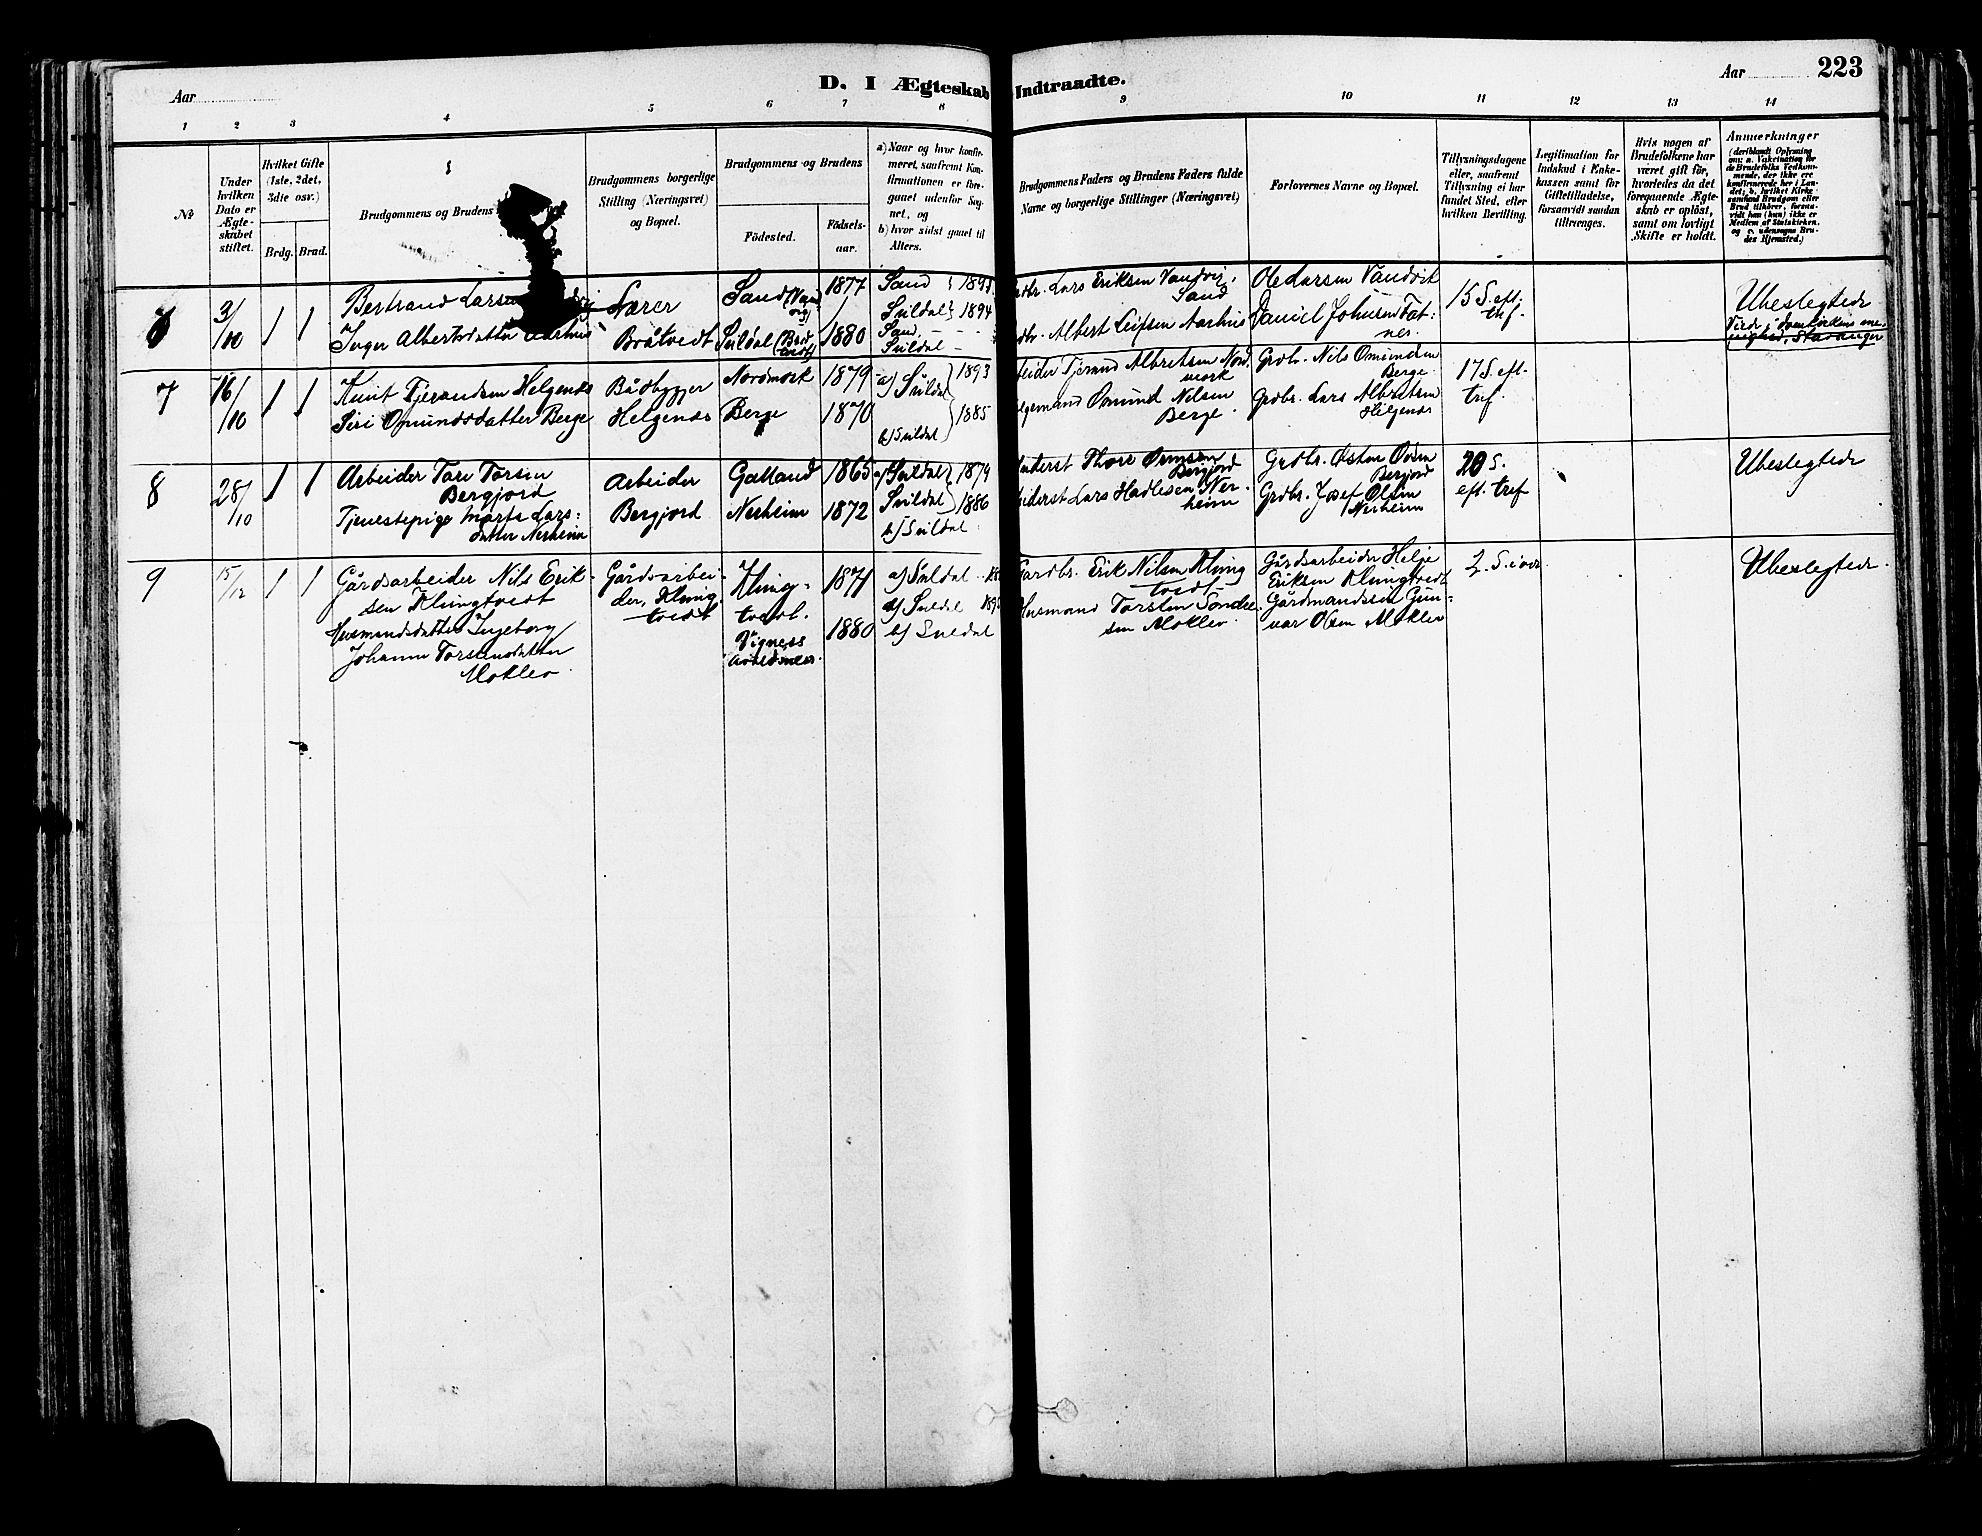 Aar
D. I Ægteskab Indtraadte.
Aar 223
1 2 3 4 5 6 7 8 9 10 11 12 13 14
No
Under hvilken Dato er Ægteskabet stiftet.
Hvilket Gifte (1ste, 2det, 3dte osv.)
Brdg. Brud.
Brudgommens og Brudens
Brudgommens borgerlige Stilling (Næringsvei) og Bopæl.
Brudgommens og Brudens
Födested. Födselsaar.
a) Naar og hvor konfirmeret, saafremt Konfirmationen er foregaaet udenfor Sognet, og
b) hvor sidst gaaet til Alters.
Brudgommens Faders og Brudens Faders fulde Navne og borgerlige Stillinger (Næringsvei)
Forlovernes Navne og Bopæl.
Tillysningsdagene eller, saafremt Tillysning ei har fundet Sted, efter hvilken Bevilling.
Legitimation for Indskud i Enkekassen samt for Giftetilladelse, forsaavidt saadan tiltrænges.
Hvis nogen af Brudefolkene har været gift før, hvorledes da det foregaaende Ægteskab er oplöst, samt om lovligt Skifte er holdt.
Anmerkninger
(deriblandt Oplysning om: a. Vakcination for de Brudefolks Vedkommende, der ikke ere konfirmerede her i Landet; b. hvilket Kirkesamfund Brudgom eller Brud tilhörer, forsaavidt han (hun) ikke er Medlem af Statskirken, og c. udensogns Brudes Hjemsted.)
6 3/10 1 1
Bertrand Larsen
Inger Albertsdatter Aarhus
Lærer
Bråtvedt
Sand
Suldal
1877
1880
Sand
Suldal 1894
Sand
Suldal
Lars Eriksen Vandvig, Sand
Albert Leifsen Aarhus
Ole Larsen Vandvik
Daniel
15 S. eft. tref.
Ubeslegtede
Stavanger
7 16/10 1 1
Knut Tjerandsen Helgenes
Siri Omundsdatter Berge
Bådbygger
Helgenes
Nordmork
Berge
1879
1870
a) Suldal 1893
1885
b) Suldal
Tjerand Albretsen Nordmork
Omund Nilsen Berge.
Grdbr. Nils Omundsen Berge
Grdbr. Lars Albretsen Helgenes
17 S. eft. tref.
8 28/10 1 1
Arbeider Tore Torsen
Bergjord
Tjenestepige Marta Larsdatter Nerheim
Arbeider
Bergjord
Gulland
Nerheim
1865
1872
a) Suldal 1879
Suldal 1886
b) Suldal
Thore Ormsen Bergjord
Lars Hadlesen Nerheim
Grdbr. Østen Bergjord
Grdbr. Josef Olsen Nerheim
20 S. eft. tref
Ubeslegtede
9 15/12 1 1
Gårdsarbeider Nils Eriksen Klungtvedt
Husmandsdatter Ingeborg
Johanne Torstensdatter
Moklev
Gårdsarbeider, Klungtvedt
Klungtvedt.
Vigenes
1871
1880
a) Suldal
a) Suldal
b) Suldal
Gårdbr. Erik Nilsen Klungtvedt
Husmand Torsten Sondresen Moklev.
Gårdsarbeider Helje Eriksen Klungtvedt
Gårdmandssøn Gunvar Olsen Moklev
2. S. i
Ubeslegtede